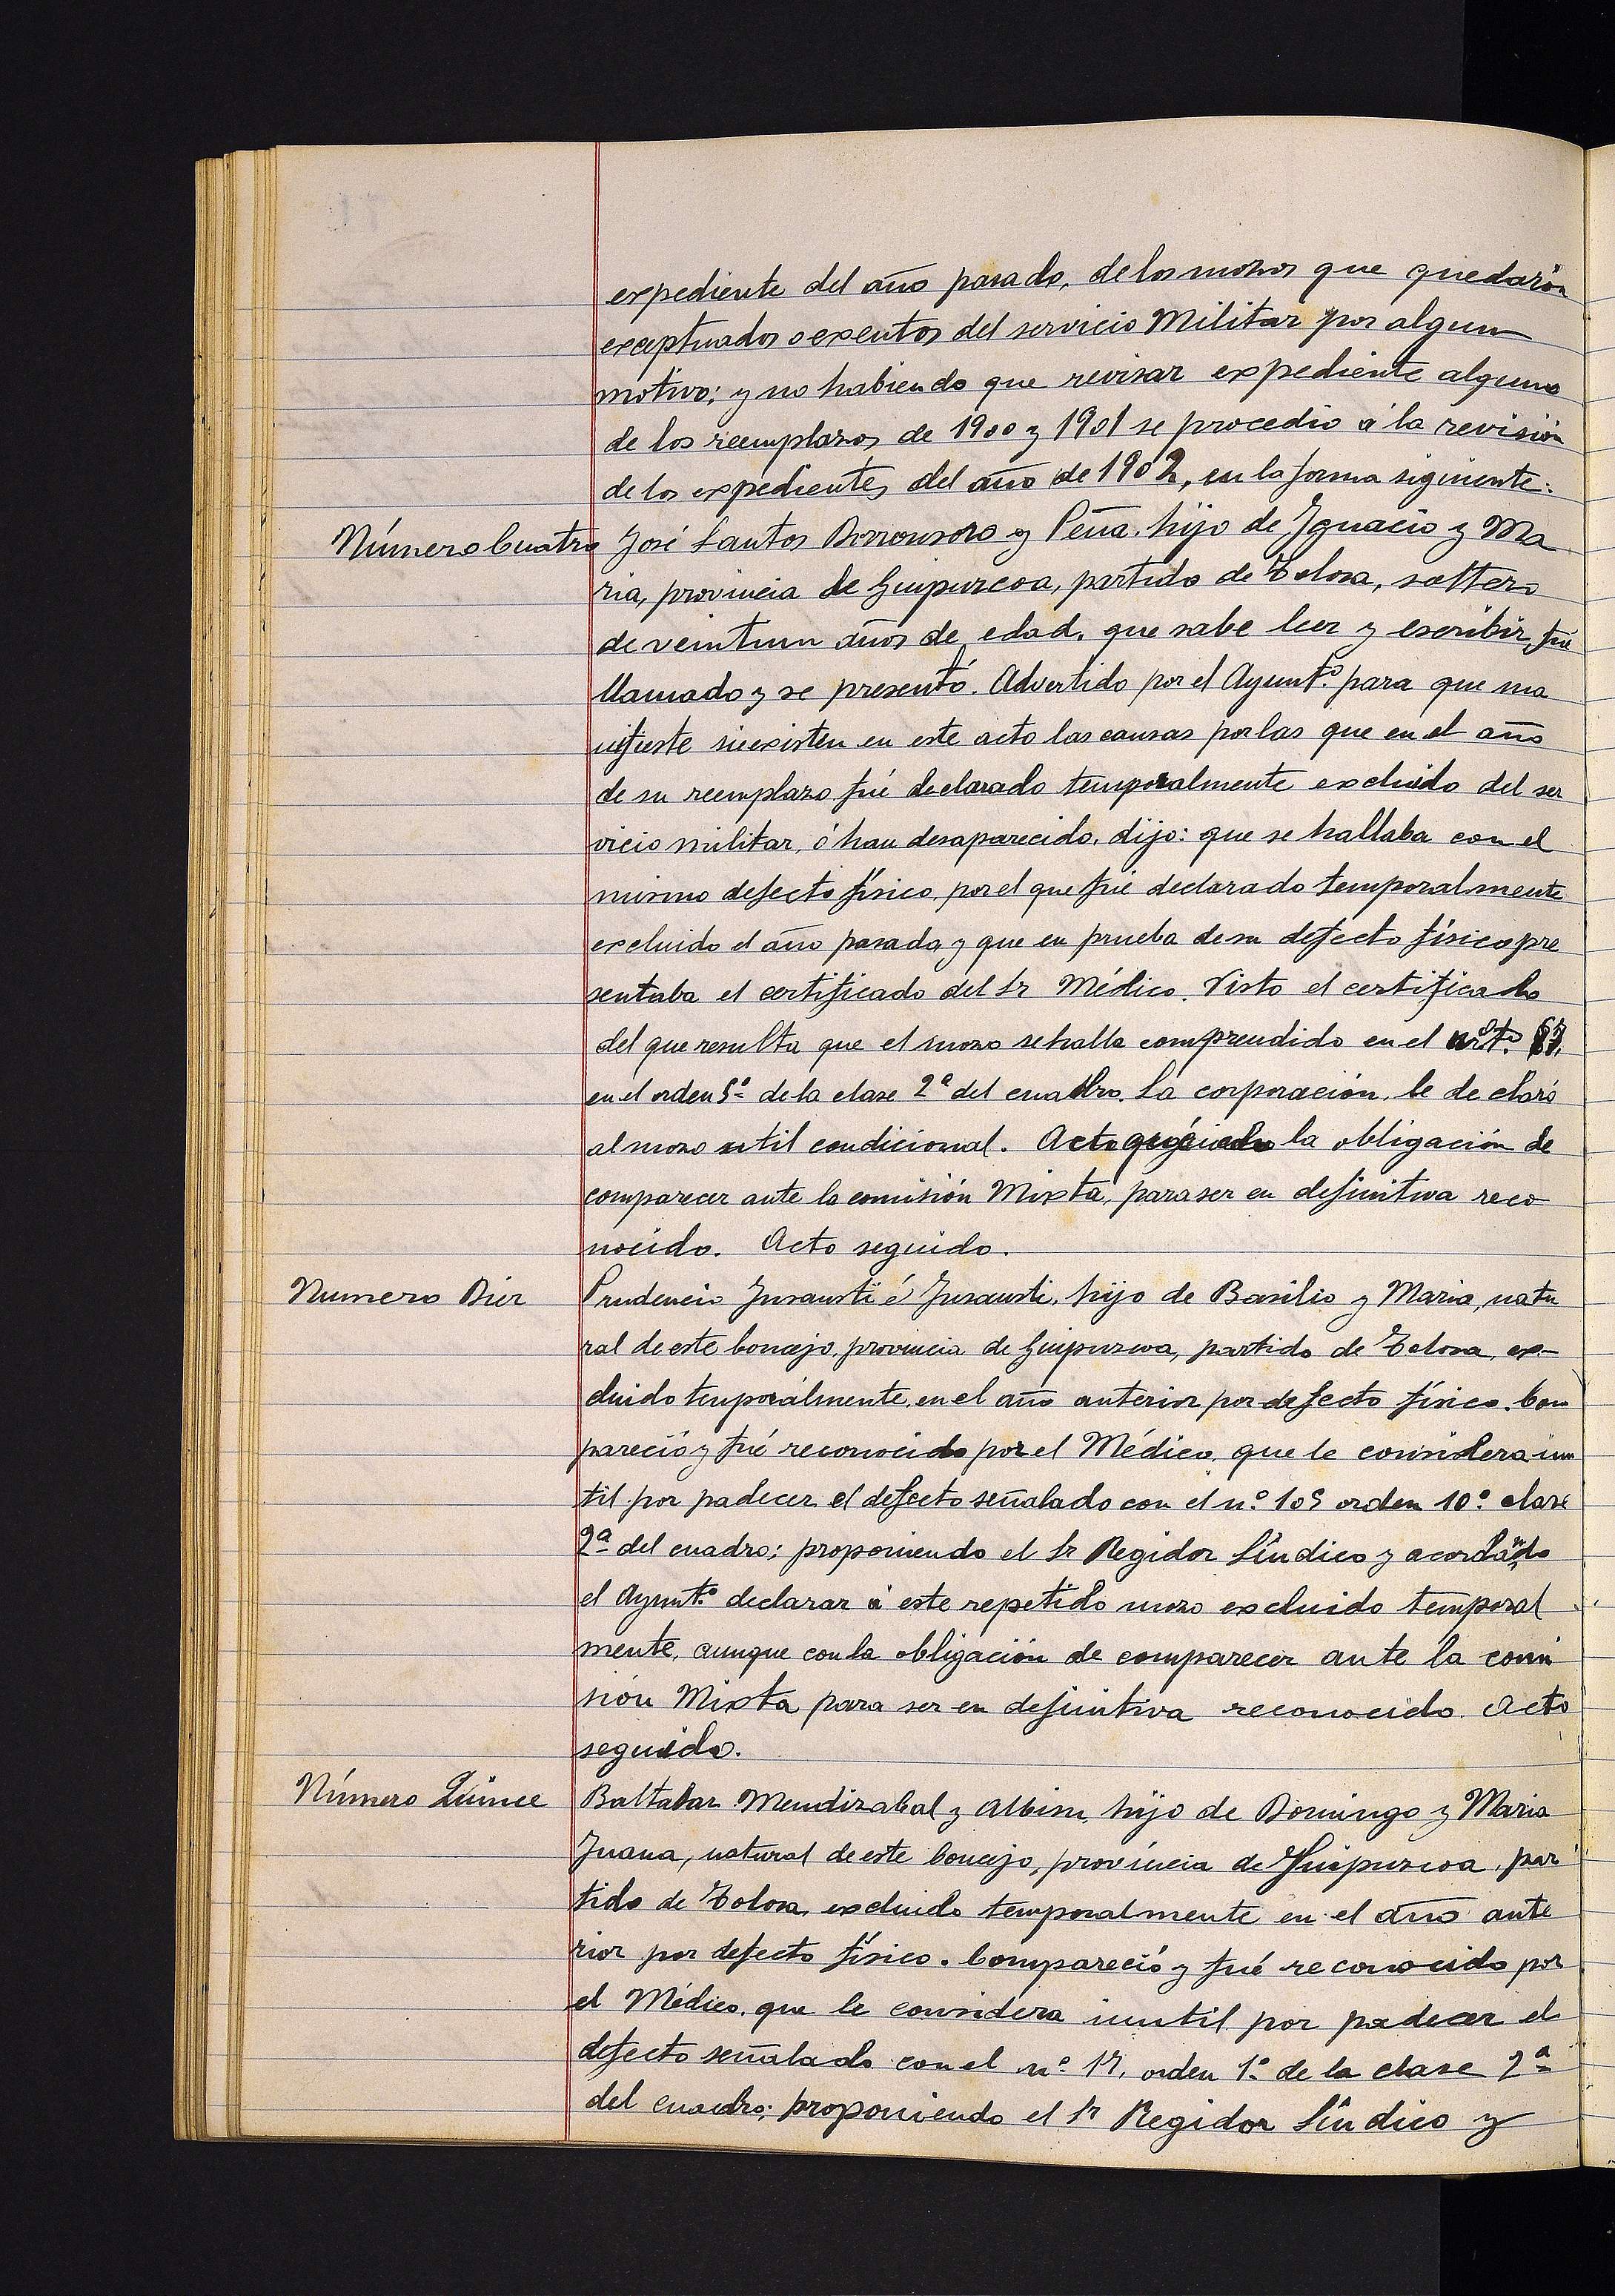 expediente del año pasado, de los mozos que quedarón
exceptuados o exentos del servicio Militar por algun
motivo; y no habiendo que revisar expediente alguno
de los reemplazos de 1900 y 1901 se procedio á la revisión
de los expedientes del año de 1902, en la forma siguiente:
Número Cuatro José Santos Dorronsoro y Peña, hijo de Ignacio y Ma
ria, provincia de Guipuzcoa, partido de Tolosa, soltero
de veintiun años de edad, que sabe leer y escribir, fué
llamado y se presentó. Advertido por el Ayunt.º para que ma
nifieste si existen en este acto las causas por las que en el año
de su reemplazo fué declarado temporalmente excluido del ser
vicio militar, ó han desaparecido, dijo: que se hallaba con el
mismo defecto físico, por el que fué declarado temporalmente
excluido el año pasado, y que en prueba de su defecto físico pre
sentaba el certificado del Sr Médico. Visto el certificado
del que resulta que el mozo se halla comprendido en el
en el orden 5º de la clase 2ª del cuadro. La corporación, le declaró
al mozo util condicional. Acto la obligación de
comparecer ante la comisión Mixta, para ser en definitiva reco
nocido. Acto seguido.
Numero Diez Prudencio Insausti é Insausti, hijo de Basilio y Maria, natu
ral de este Concejo, provincia de Guipuzcoa, partido de Tolosa, ex-
cluido temporálmente, en el año anterior por defecto físico. Com
pareció y fué reconocido por el Médico, que le considera inu
til por padecer el defecto señalado con el nº 105 orden 10º clase
2ª del cuadro; proponiendo el Sr Regidor Síndico y acordando
el Ayunt.º declarar á este repetido mozo excluido temporal
mente, aunque con la obligación de comparecer ante la comi
sión Mixta para ser en definitiva reconocido. Acto
seguido.
Número Quince Baltasar Mendizabal y Albisu, hijo de Domingo y Maria
Juana, natural de este Concejo, provincia de Guipuzcoa, par
tido de Tolosa, excluido temporalmente en el año ante
rior por defecto físico. Compareció y fué reconocido por
el Médico, que le considera inutil por padecer el
defecto señalado con el nº 17, orden 1º de la clase 2ª
del cuadro; proponiendo el Sr Regidor Síndico y